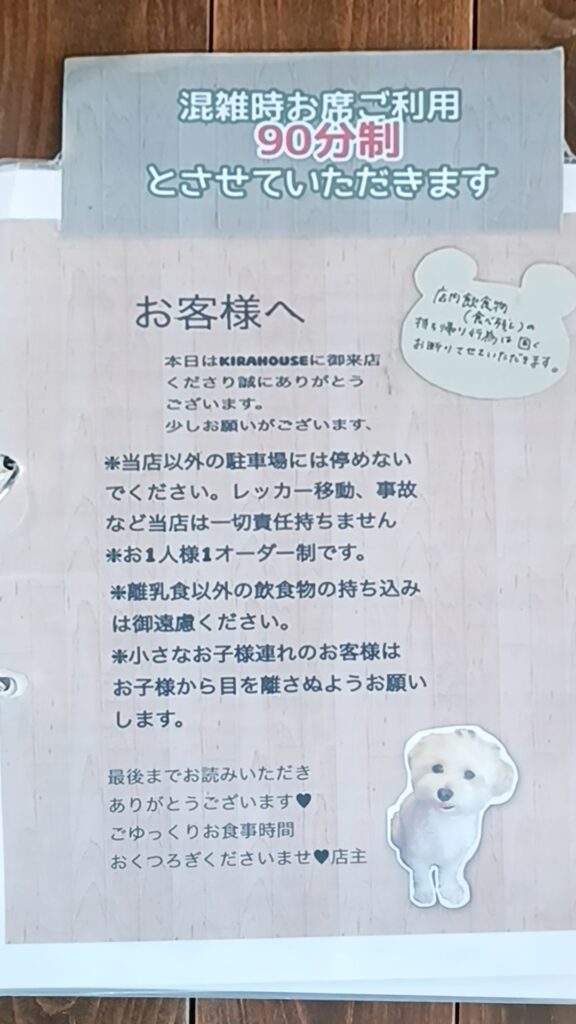 混雑時お席ご利用
90分制
とさせていただきます
お客様へ
店内飲食物
(食べ残し)の
持ち帰り行為は固く
お断りさせていただきます。
本日はKIRAHOUSEに御来店
くださり誠にありがとう
ございます。
少しお願いがございます、
※当店以外の駐車場には停めない
でください。レッカー移動、事故
など当店は一切責任持ちません
※お1人様1オーダー制です。
※離乳食以外の飲食物の持ち込み
は御遠慮ください。
※小さなお子様連れのお客様は
お子様から目を離さぬようお願い
します。
最後までお読みいただき
ありがとうございます♥
ごゆっくりお食事時間
おくつろぎくださいませ♥店主